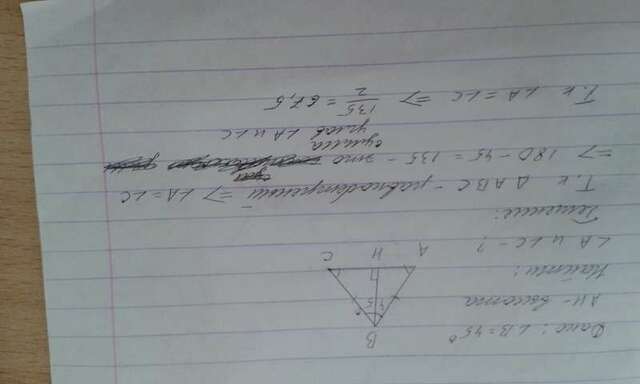 Дано: ∠B=45°
AH - высота
Найти:
∠A и ∠C - ?
B
45
A H C
Решение:
Т.к ΔABC - равнобедренный ⇒ ∠A = ∠C
⇒ 180 - 45 = 135 - это сумма
углов ∠A и ∠C
Т.к ∠A = ∠C ⇒ 135/2 = 67,5